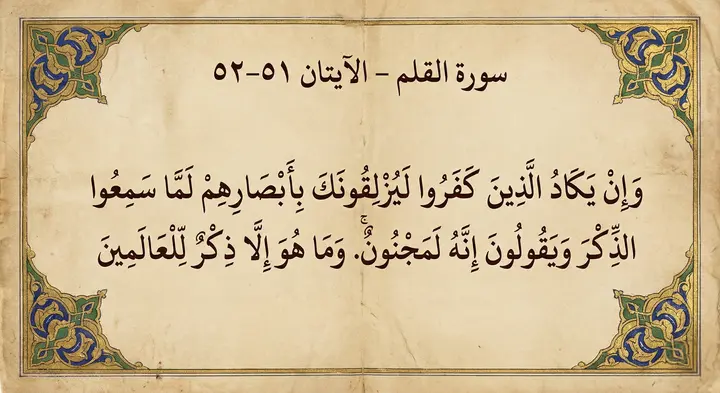 سورة القلم - الآيتان ٥١-٥٢
وَإِنْ يَكَادُ الَّذِينَ كَفَرُوا لَيُزْلِقُونَكَ بِأَبْصَارِهِمْ لَمَّا سَمِعُوا
الذِّكْرَ وَيَقُولُونَ إِنَّهُ لَمَجْنُونٌۚ. وَمَا هُوَ إِلَّا ذِكْرٌ لِّلْعَالَمِينَ